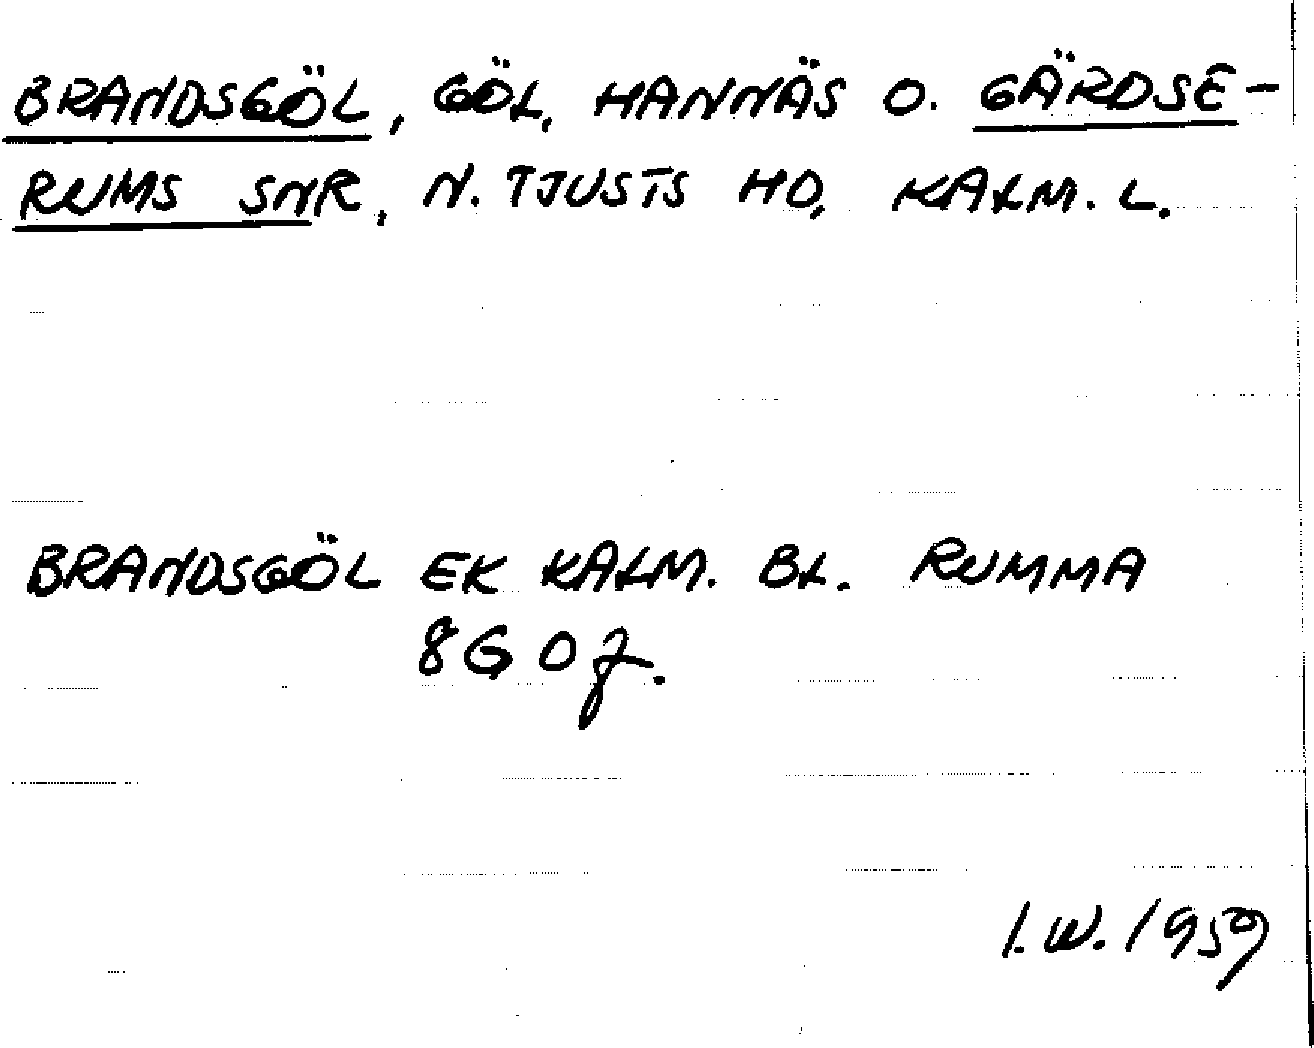 BRANDSGÖL, GÖL, HANNÄS O. GÄRDSE-
RUMS SNR, N. TJUSTS HD, KALM. L.
BRANDSGÖL EK KALM. BL. RUMMA
8G 0f.
I.W. 1959